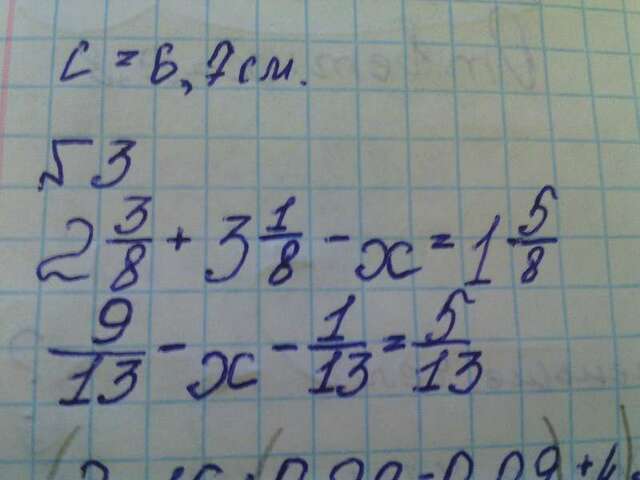 с = 6,7 см.
53
2 3/8 + 3 1/8 - x = 1 5/8
9/13 - x - 1/13 = 5/13